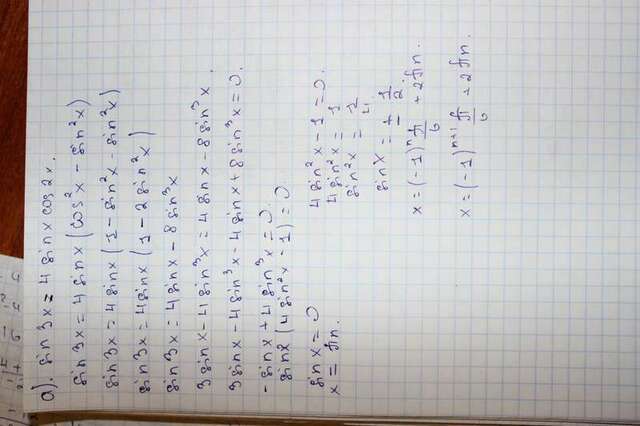 а). sin 3x = 4 sin x cos 2x.
sin 3x = 4 sin x (cos²x - sin²x)
sin 3x = 4 sin x (1 - sin²x - sin²x)
sin 3x = 4 sin x (1 - 2 sin²x)
sin 3x = 4 sin x - 8 sin³x
3 sin x - 4 sin³x = 4 sin x - 8 sin³x.
3 sin x - 4 sin³x - 4 sin x + 8 sin³x = 0.
- sin x + 4 sin³x = 0.
sin x (4 sin²x - 1) = 0
sin x = 0
x = πn.
4 sin²x - 1 = 0.
4 sin²x = 1
sin²x = 1/4
sin x = ± 1/2.
x = (-1)ⁿ π/6 + 2πn.
x = (-1)ⁿ⁺¹ π/6 + 2πn.